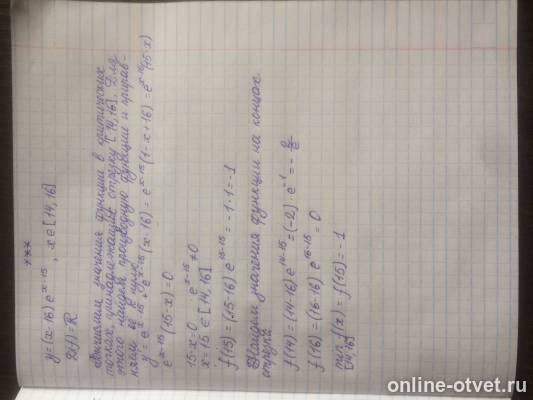 ***
y=(x-16)e^{x-15}, x∈[14,16]
D(f)=R
Вычислим значения функции в критических
точках, принадлежащих отрезку [14,16]. Для
этого найдём производную функции и прирав-
няем её к нулю.
y'=e^{x-15}+e^{x-15}(x-16)=e^{x-15}(1-x+16)=e^{x-15}(15-x)
e^{x-15}(15-x)=0
15-x=0 e^{x-15}≠0
x=15∈[14,16]
f(15)=(15-16)e^{15-15}=-1·1=-1
Найдём значения функции на концах
отрезка
f(14)=(14-16)e^{14-15}=(-2)·e^{-1}=-2/e
f(16)=(16-16)·e^{16-15}=0
f(x)=f(15)=-1
[14,16]
online-otvet.ru